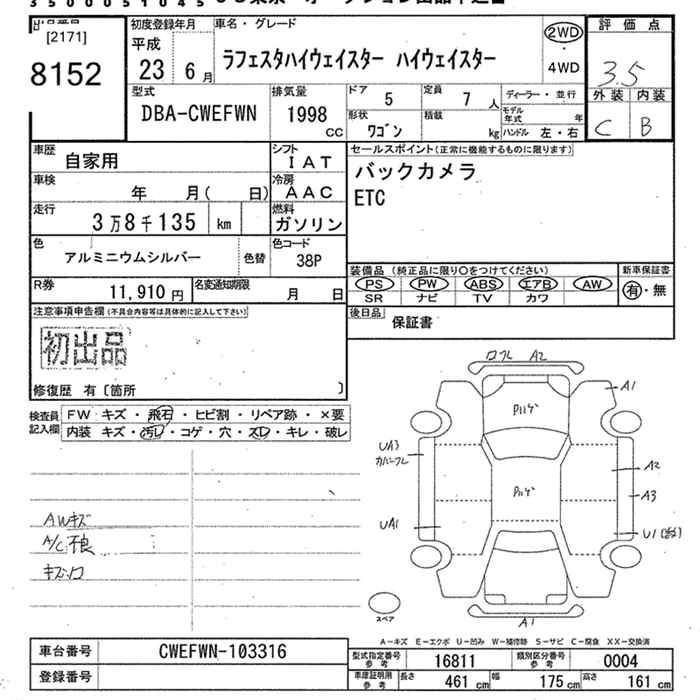 出品番号
[2171]
8152
初度登録年月
平成
23 6月
車名・グレード
ラフェスタハイウェイスター ハイウェイスター
2WD
・
4WD
評価点
3.5
外装 内装
C B
型式
DBA-CWEFWN
排気量
1998
CC
ドア 5
定員 7人
形状 ワゴン
積載 kg
ディーラー・並行
モデル年式 年
ハンドル 左・右
車歴 自家用
シフト IAT
車検 年 月( 日)
冷房 AAC
走行 3万8千135 km
燃料 ガソリン
色 アルミニウムシルバー 色替
色コード 38P
R券 11,910円
名変通知期限 月 日
セールスポイント(正常に機能するものに限ります)
バックカメラ
ETC
装備品 (純正品に限り○をつけてください)
PS PW ABS エアB AW
SR ナビ TV カワ
新車保証書
有・無
後日品 保証書
注意事項申告欄(不具合内容等は具体的に記入して下さい)
初出品
修復歴 有〔箇所 〕
検査員記入欄
FW キズ・飛石・ヒビ割・リペア跡・×要
内装 キズ・汚レ・コゲ・穴・スレ・キレ・破レ
AWキズ
A/C不良
A2
A1
UA3
A2
A3
UA1
U1
A1
スペア
A-キズ E-エクボ U-凹み W-補修跡 S-サビ C-腐食 XX-交換済
車台番号 CWEFWN-103316
登録番号
型式指定番号 参考 16811
類別区分番号 参考 0004
車庫証明用 参考 長さ 461 cm 幅 175 cm 高さ 161 cm